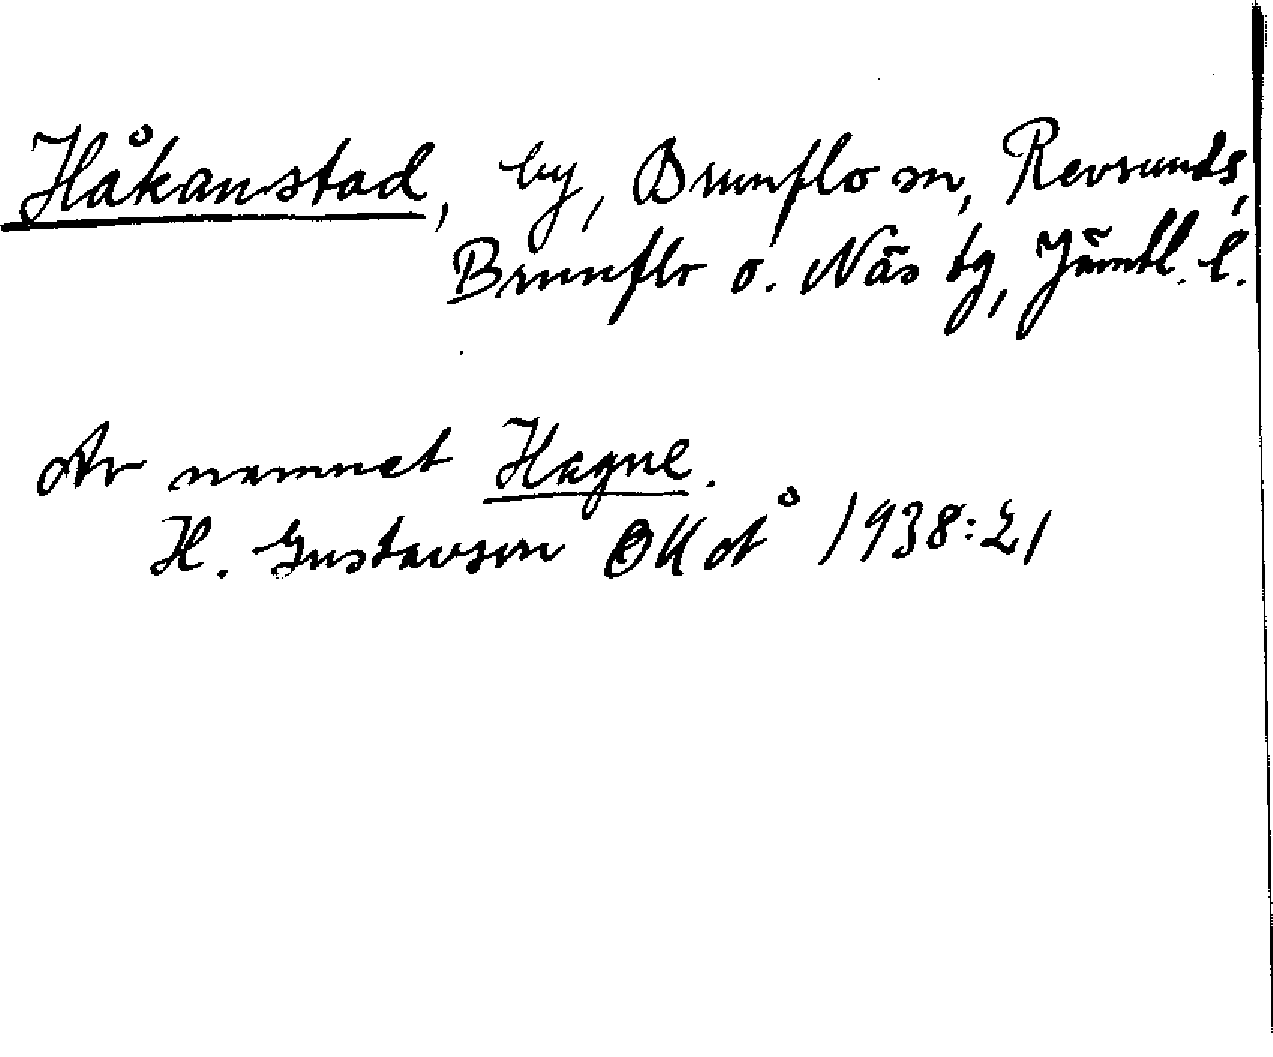 Håkanstad, by, Brunflo sn, Revsunds,
Brunflo o. Näs tg, Jämtl. l.
Av namnet Hagne.
H. Gustavson OKÅ 1938:21